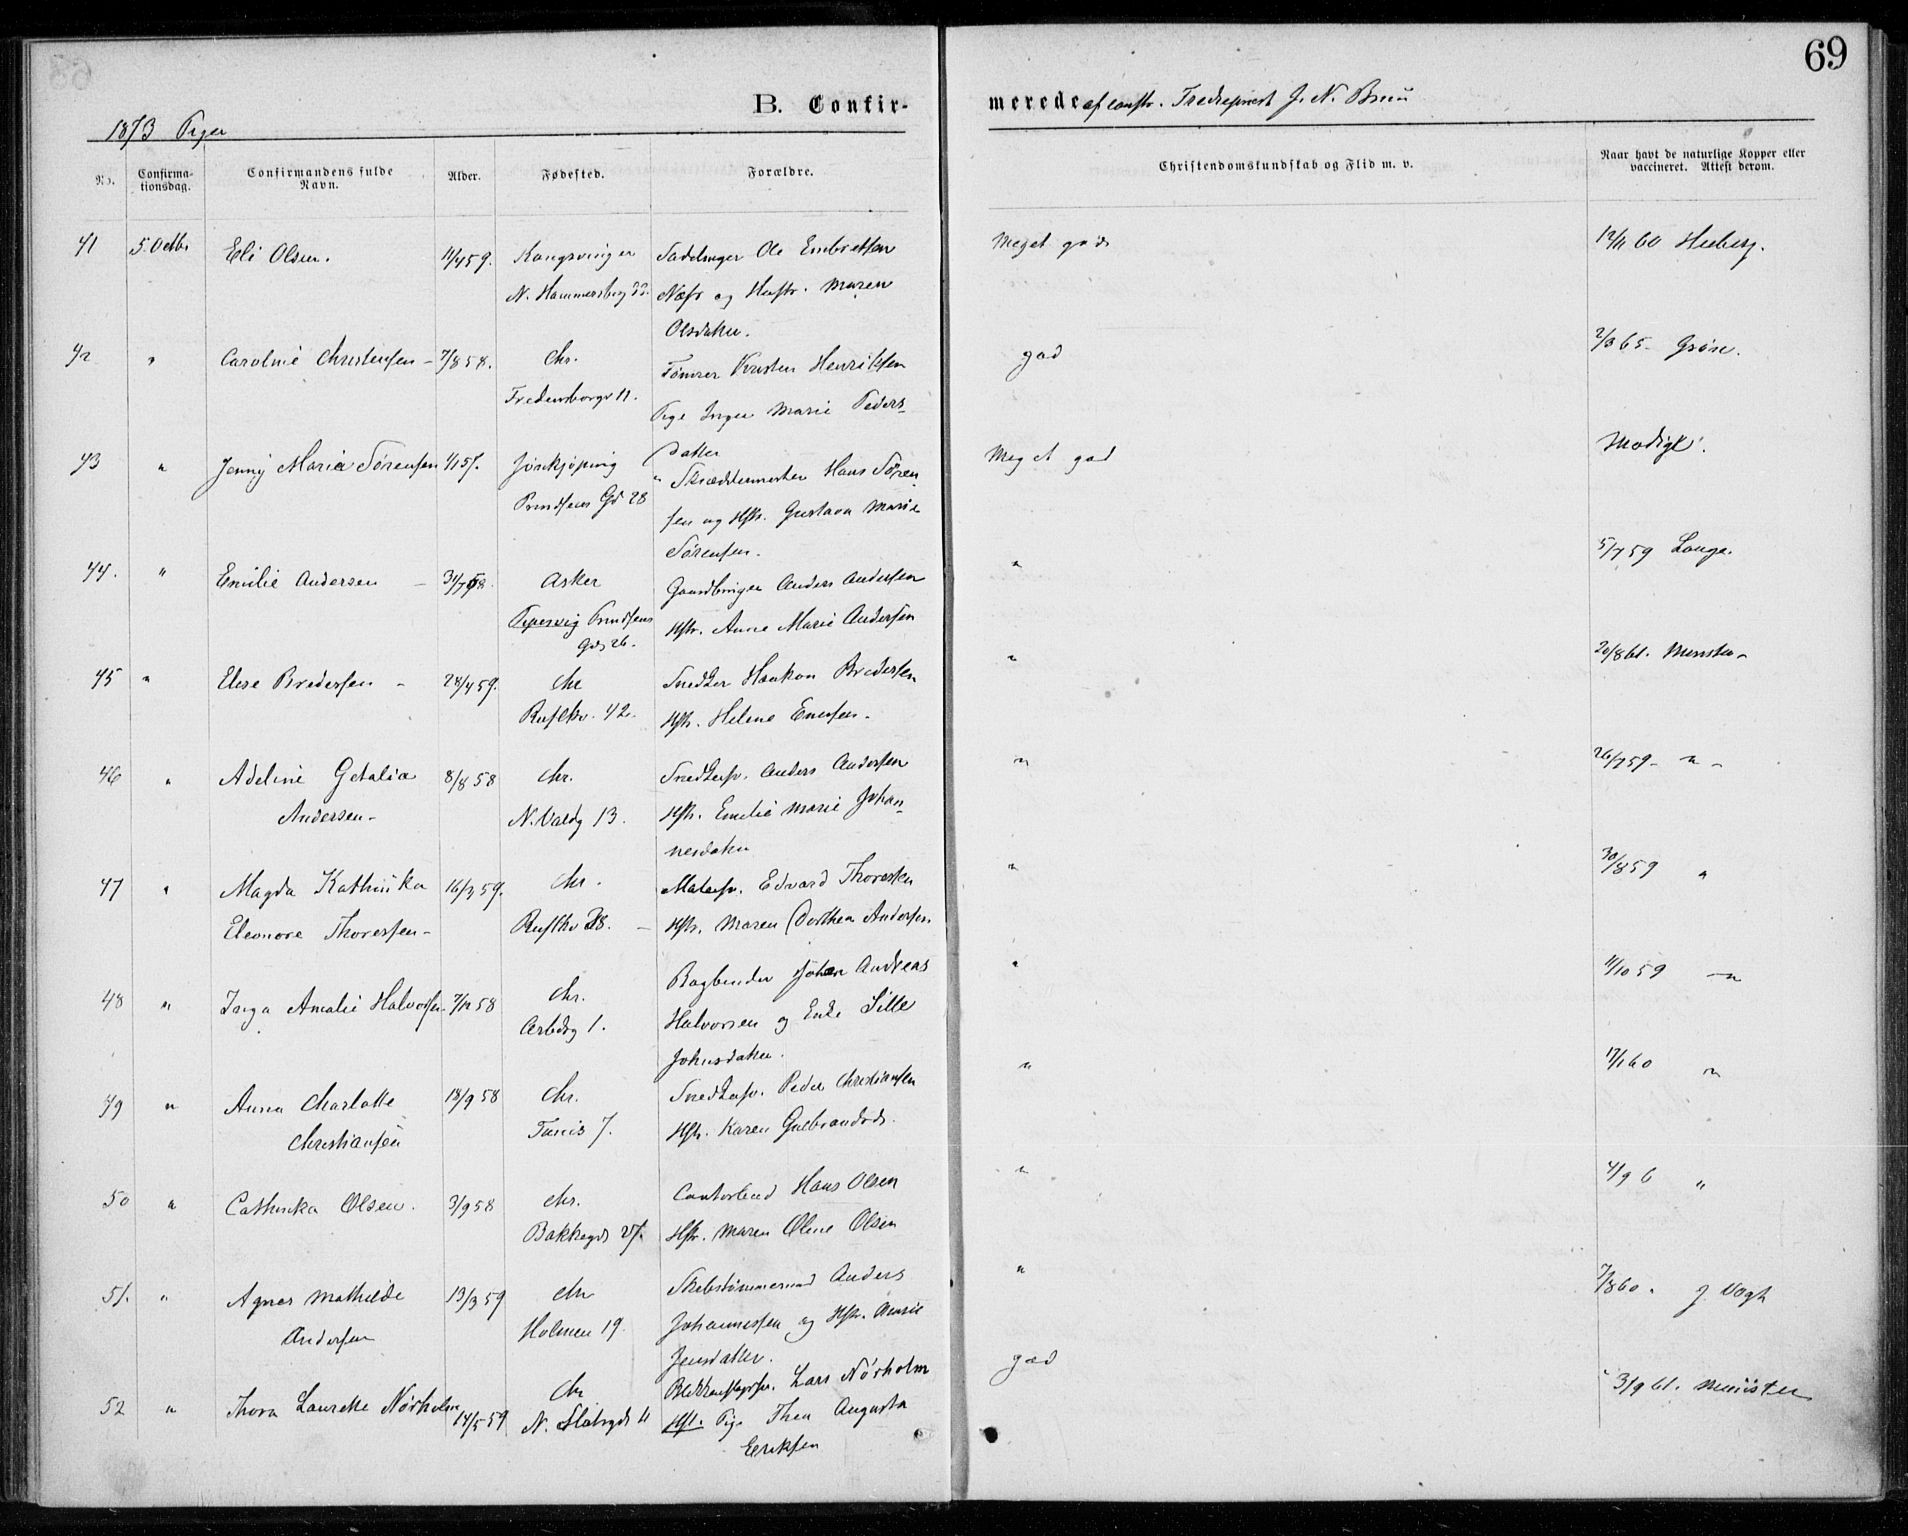 69
B. Confir-
merede af constr. Tredieprest J. N. Bruu
1873 Piger
No.
Confirma-
tionsdag.
Confirmandens fulde
Navn.
Alder.
Fødested.
Forældre.
Christendomskundskab og Flid m. v.
Naar havt de naturlige Kopper eller
vaccineret. Attest derom.
41 5. Octbr Eli Olsen. 11/4 59. Kongsvinger Sadelmager Ole Embretsen Meget god 12/11 60 Heiberg.
N. Hammersborg 33. Næss og Hustr. Maren
Olsdatter.
42 " Caroline Christensen - 7/8 58. Chr. Tømrer Kristen Henriksen god 2/3 65
Fredensborgv 11. Pige Inger Marie Peders-
datter
43 " Jenny Maria Sørensen Jønkjøping Skræddermester Hans Søren Meget god
Prindsens Gd 28 sen og Hstr. Gustava Marie
Sørensen.
44. " Emilie Andersen - 31/7 58. Asker Gaardbruger Anders Andersen " 5/7 59 Lange.
Prindsens Hstr. Anne Marie Andersen
Gd 26.
45 " Elise Bredersen - 28/4 59. Chr Snedker Haakon Bredersen " 20/8 61. Munster
Rusløkv. 42. Hstr. Helene
46 " Adeline Getalia 8/8 58 Chr. Snedkersv. Anders Andersen " 26/7 59 - " -
Andersen - N. Valdg 13. Hstr. Emilie Marie Johan-
nesdatter
47 " Magda Kathinka 16/3 59. Chr. Malersv. Edvard Thoresen " 30/8 59 "
Eleonore Thoresen - Rusløkv 38. - Hstr. Maren Dorthea Andersen
48 " Inga Amalie Halvorsen 7/12 58 Chr. Bogbinder Johan Andreas " 11/10 59 - "
Arbdg 1. Halvorsen og Enke Sille
Johnsdatter.
49 " Anna Charlotte 18/9 58 Chr. Snedkersv. Peder Christiansen " 17/1 60 "
Christiansen Tunis 7. Hstr. Karen Gulbrandsd.
50 " Cathinka Olsen. 3/9 58 Chr. Contorbud Hans Olsen " 4/9 6 "
Bakkegd 27. Hstr. Maren Oline Olsen
51. " Agnes Mathilde 13/3 59 Chr Skibstømmermand Anders " 7/8 60. J. Vogt
Andersen Holmen 19. Johannessen og Hstr.
Jensdatter.
52 " Thora Laurette Nørholm 14/5 59 Chr Lars Nørholm god 3/9 61. Munster
N. Slotsgd 11 Hst. Pige Thea Augusta
Eriksen